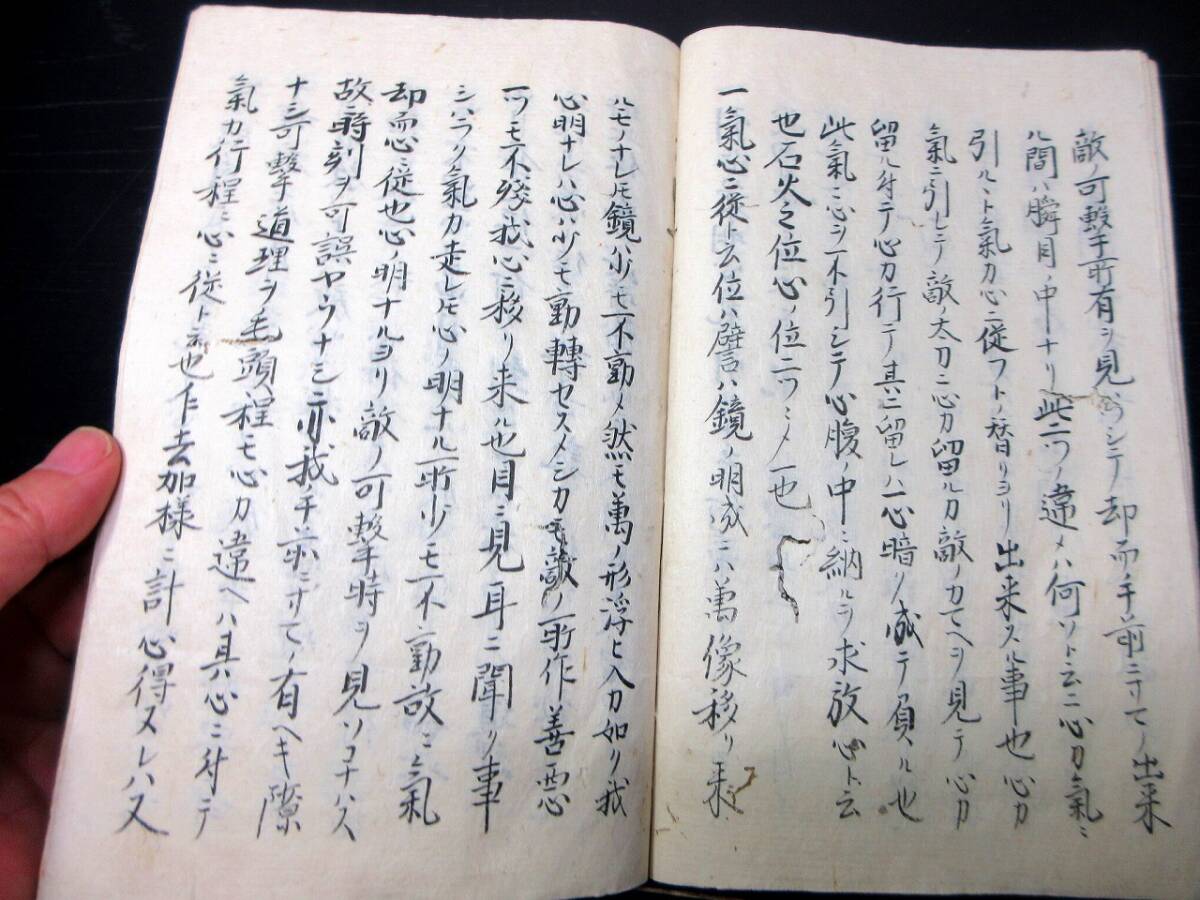 敵ノ可撃手所有ヲ見ナカラシテ却而手前ニスキテノ出来
ル間ハ瞬目ノ中ナリ此二ツノ違メハ何ソト云ニ心カ氣ニ
引ルヽト氣カ心ニ従フトノ替リヨリ出来スル事也心カ
氣ニ引レテ敵ノ太刀ニ心カ留ルカ敵ノカマヘヲ見テ心カ
留ル付テ心カ行テ其ニ留レハ心暗ク成テ負ル也
此氣ニ心ヲ不引シテ心腹ノ中ニ納ルヲ求放心ト云
也石火之位心ノ位二ツニメ一也
一氣心ニ従ト云位ハ譬ハ鏡ノ明成ニハ萬像移リ来
ルモノナレモ鏡少モ不動メ然モ萬ノ形浮ヒ入カ如ク我
心明ナレハ心少モ動轉セスメシカモ敵ノ所作善悪
一ツモ不残我心ニ移リ来ル也目ニ見耳ニ聞クノ事
シハラク氣カ走レモ心ノ明ナル所少モ不動故ニ氣
却而心ニ従也心ノ明ナルヨリ敵ノ可撃時ヲ見ソコナハス
故ニ時刻ヲ可誤ヤウナシ亦我手前ニスキテノ有ヘキ際
ナシ可撃道理ヲ毛頭程モ心カ違ヘハ其心ニ付テ
氣カ行程ニ心ニ従ト云也乍去加様ニ計心得ヌレハ又